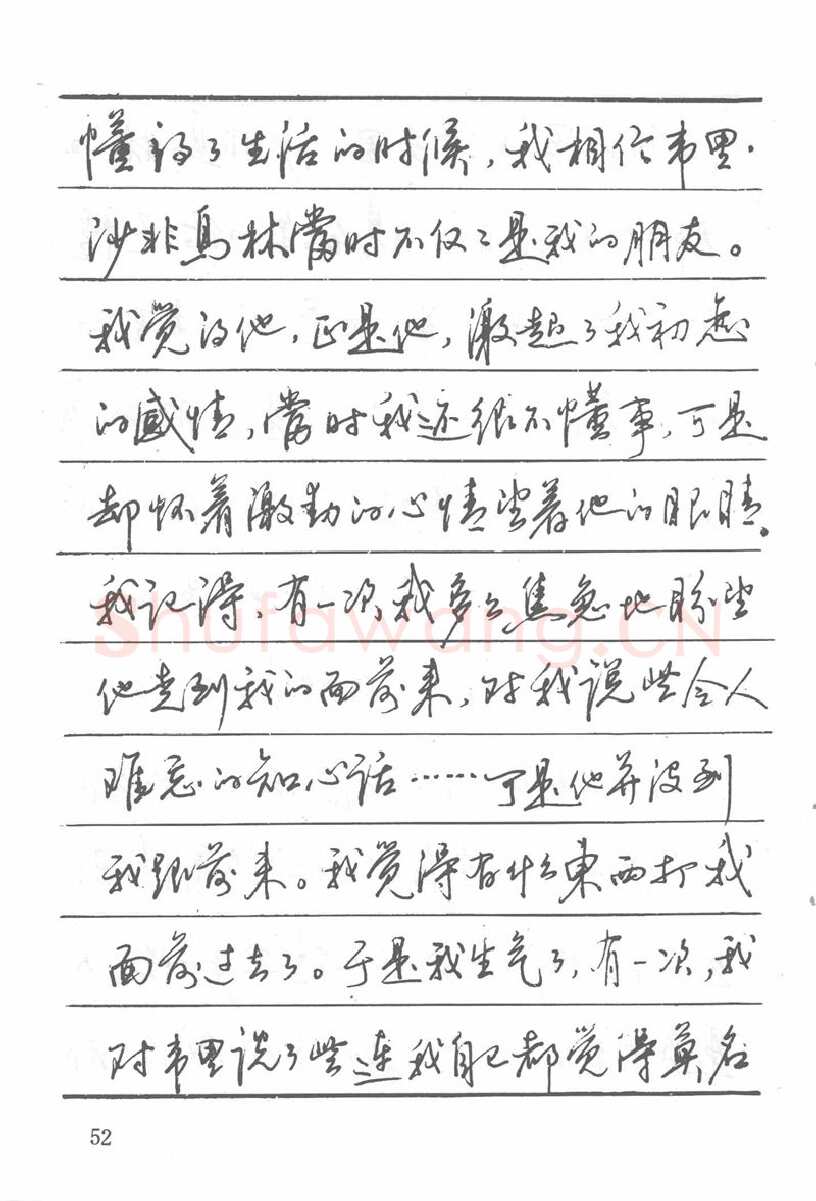 懂得了生活的时候,我相信韦里·
沙非乌林当时不仅仅是我的朋友。
我觉得他,正是他,激起了我初恋
的感情,当时我还很不懂事,可是
却怀着激动的心情望着他的眼睛。
我记得,有一次,我多么焦急地盼望
他走到我的面前来,对我说些令人
难忘的知心话……可是他并没到
我跟前来。我觉得有什么東西打我
面前过去了。于是我生气了,有一次,我
对韦里说了些连我自己都觉得莫名
52
Shufawang.CN